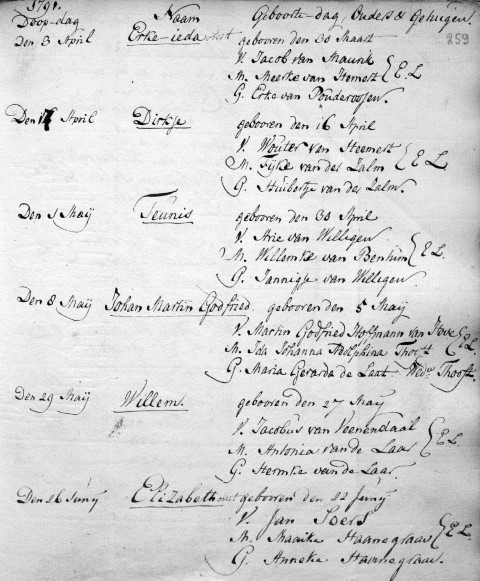 1791.
Doop-dag Naam Geboorte-dag, Ouders & Getuigen.
Den 3 April Erke-ieda gebooren den 20 Maart 259
V. Jacob van Maurik
M. Meerke van Hemert } E. L
G. Erke van Pouderooijen.
Den 17 April Dirkje gebooren den 16 April
V. Wouter van Heemert
M. Fijke van der Zalm } E. L.
G. Huibertje van der Zalm.
Den 1 Maij Teunis gebooren den 30 April
V. Arie van Willigen
M. Willemke van Benthim } E L.
G. Jannigje van Willigen.
Den 8 Maij Johan Martin Godfried. gebooren den 5 Maij
V. Martin Godfried Hofmann van Hove } E L.
M. Ida Johanna Adolphina Thooft
G. Maria Gerarda de Laat Wedw Thooft.
Den 29 Maij Willem. gebooren den 27 Maij
V. Jacobus van Veenendaal
M. Antonia van de Laar } E. L.
G. Hermke van de Laar.
Den 26 Junij Elizabeth gebooren den 22 Junij
V. Jan Soers
M. Maaike Haanegraaf } E. L.
G. Anneke Haanegraaf.